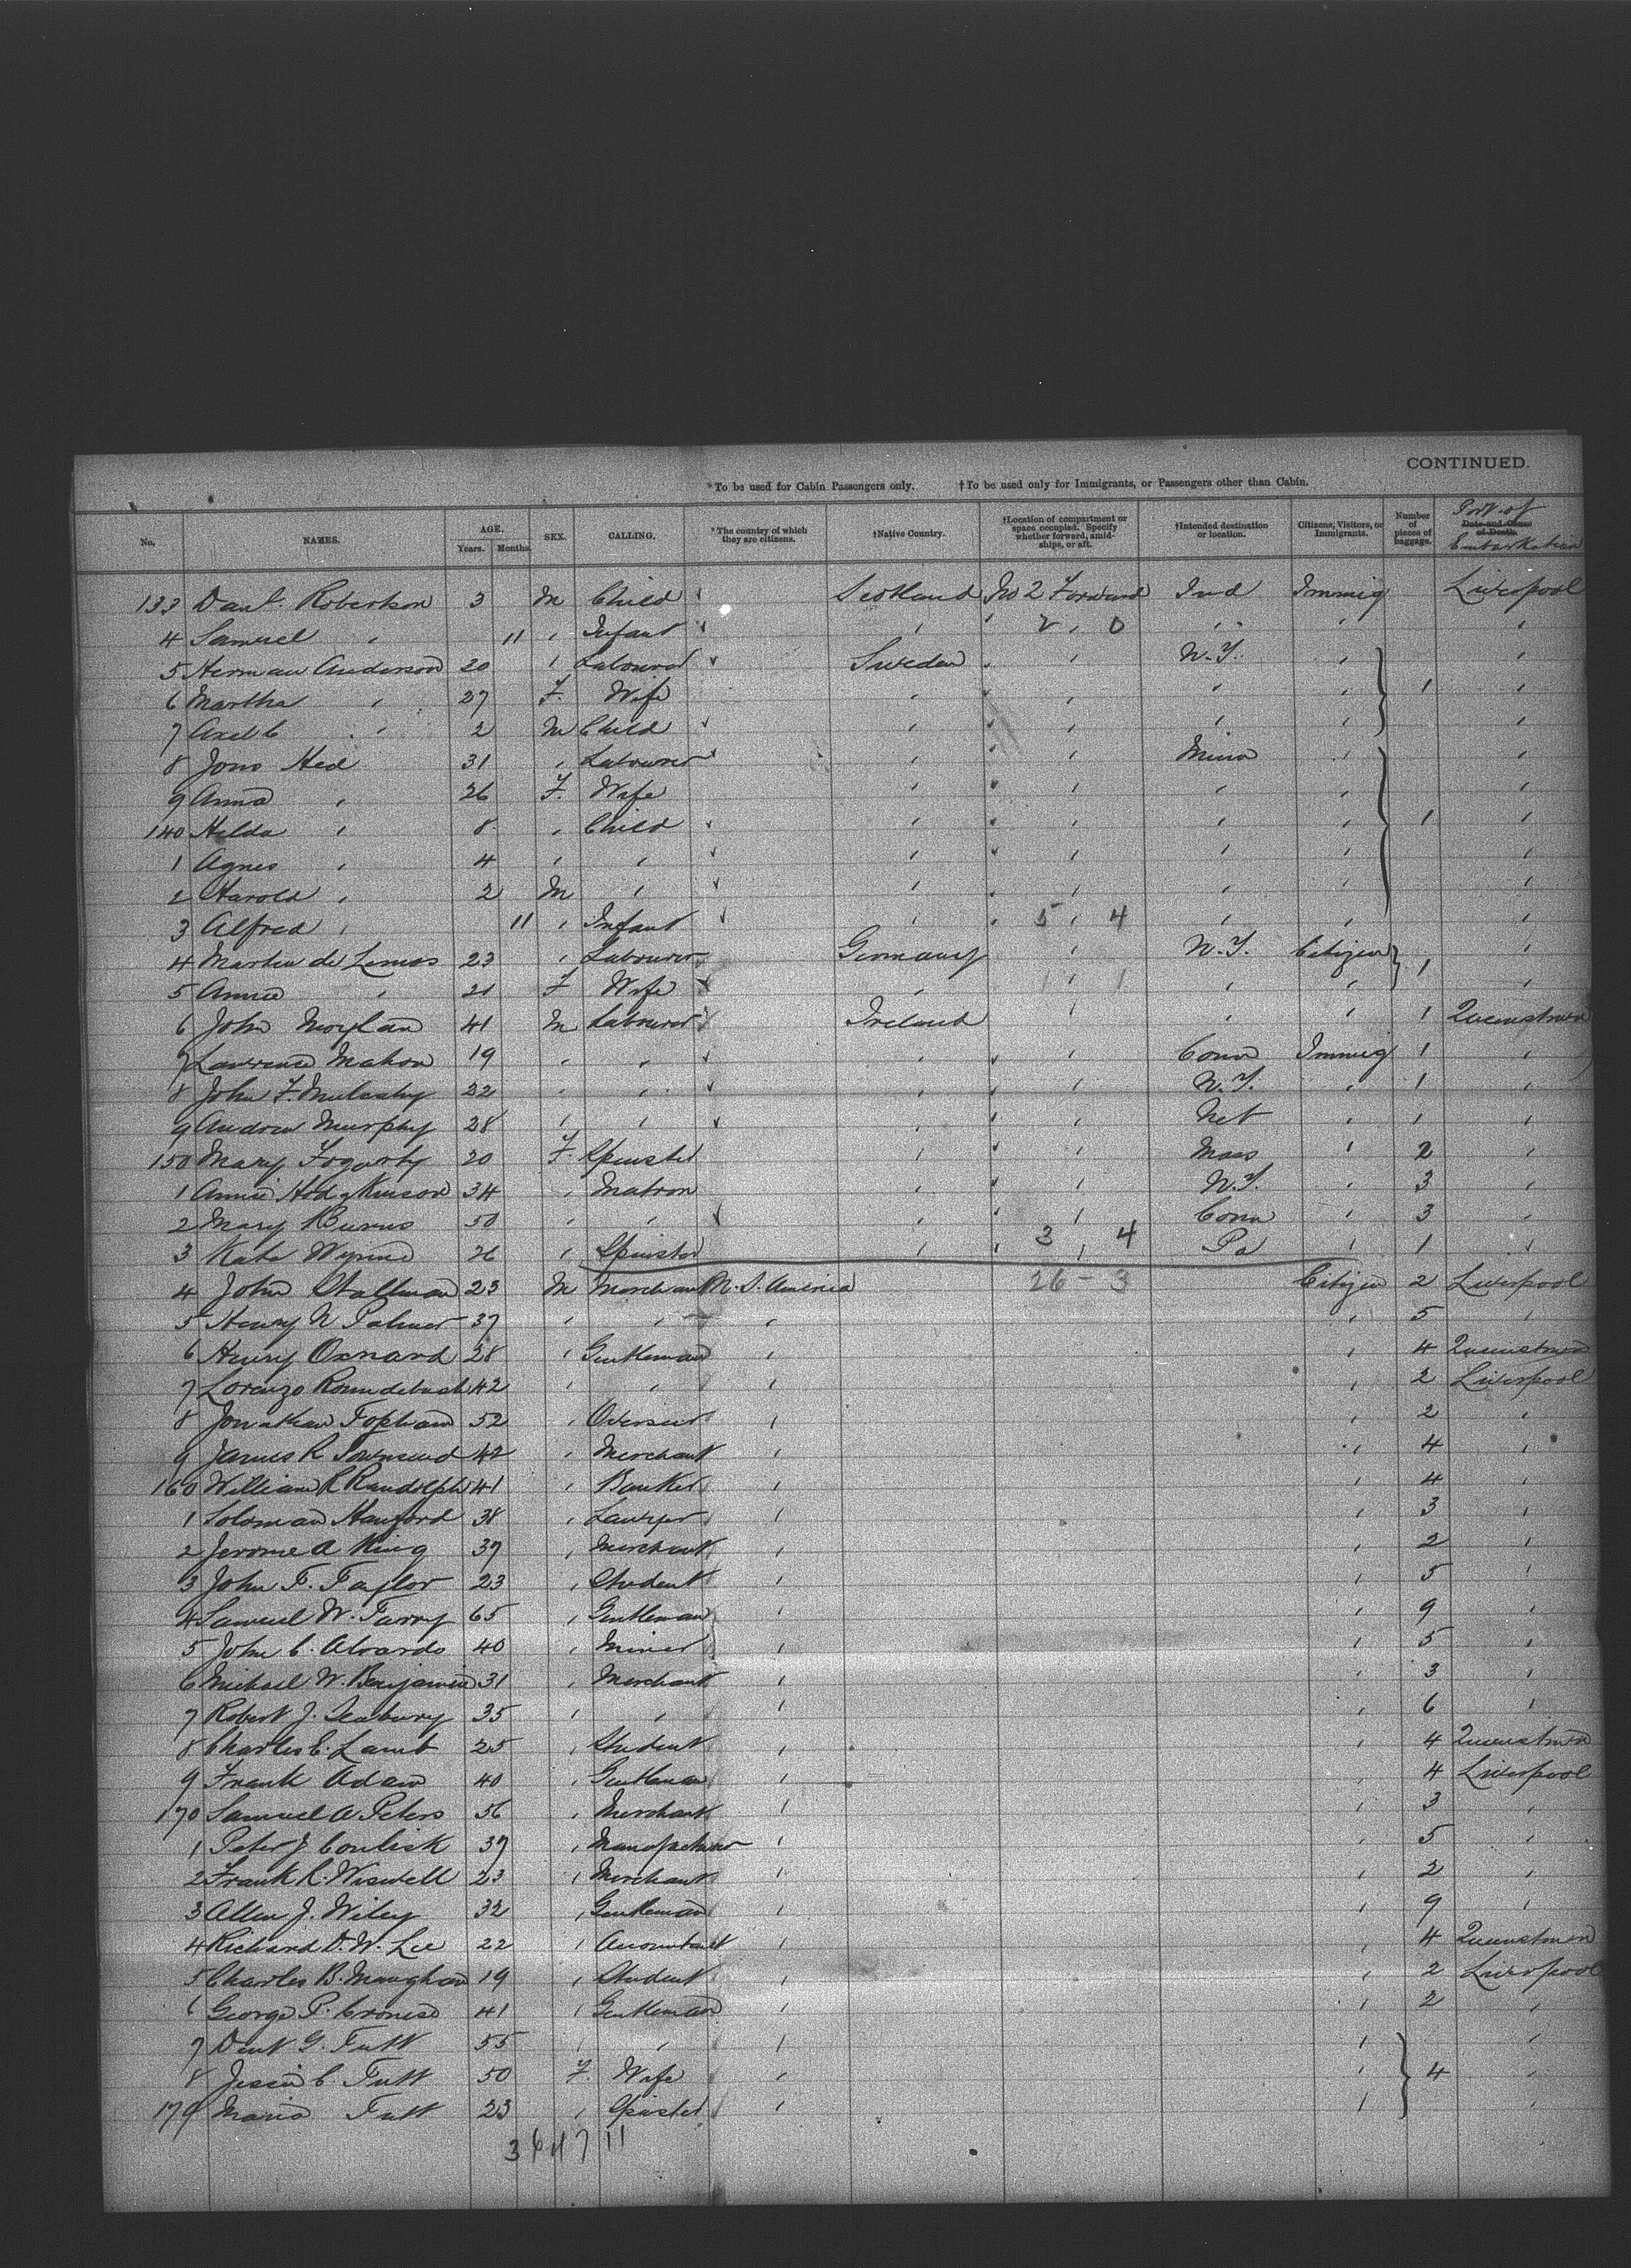 CONTINUED.
*To be used for Cabin Passengers only. †To be used only for Immigrants, or Passengers other than Cabin.
No. NAMES. AGE. Years. Months. SEX. CALLING. *The country of which they are citizens. †Native Country. †Location of compartment or space occupied. Specify whether forward, amidships, or aft. †Intended destination or location. Citizens, Visitors, or Immigrants. Number of pieces of baggage. Date and Cause of Death. Port of Embarkation
133 Danl. Robertson 3 M Child Scotland No 2 Forward Ind Immig Liverpool
4 Samuel " 11 " Infant " " 2 " 0 " " "
5 Herman Anderson 20 " Labourer Sweden " " N.Y. " "
6 Martha " 27 F. Wife " " " " " 1 "
7 Axel C " 2 M Child " " " " " "
8 Jons Hed 31 " Labourer " " " Minn " "
9 Anna " 26 F. Wife " " " " " "
140 Hilda " 8 " Child " " " " " 1 "
1 Agnes " 4 " " " " " " " "
2 Harold " 2 M " " " " " " "
3 Alfred " 11 " Infant " " 5 " 4 " " "
4 Martin de Lemos 23 " Labourer Germany " N.Y. Citizen 1 "
5 Annie " 21 F Wife " 1 1 " " "
6 John Moylan 41 M Labourer Ireland " " " 1 Queenstown
7 Lawrence Mahon 19 " " " " " Conn Immig 1 "
8 John F. Mulcahy 22 " " " " " N.Y. " 1 "
9 Andrew Murphy 28 " " " " " " 1 "
150 Mary Fogarty 20 F. Spinster " " " Mass " 2 "
1 Annie Hodgkinson 34 " Matron " " " N.Y. " 3 "
2 Mary Burns 50 " " " " " Conn " 3 "
3 Kate Wynne 26 " Spinster " " 3 " 4 Pa " 1 "
4 John Stallman 23 M Merchant U.S. America 26 - 3 Citizen 2 Liverpool
5 Henry N Palmer 37 " " " " 5 "
6 Henry Oxnard 28 " Gentleman " " 4 Queenstown
7 Lorenzo Roundebush 42 " " " " 2 Liverpool
8 Jonathan Topham 52 " Overseer " " 2 "
9 James R Townsend 42 " Merchant " " 4 "
160 William R Randolph 41 " Banker " " 4 "
1 Soloman Hanford 38 " Lawyer " " 3 "
2 Jerome A King 37 " Merchant " " 2 "
3 John F. Taylor 23 " Student " " 5 "
4 Samuel W. Tarry 65 " Gentleman " " 9 "
5 John C. Alvardo 40 " Miner " " 5 "
6 Michael W. Benjamin 31 " Merchant " " 3 "
7 Robert J. Seabury 35 " " " " 6 "
8 Charles E. Lamb 25 " Student " " 4 Queenstown
9 Frank Adam 40 " Gentleman " " 4 Liverpool
170 Samuel A Peters 56 " Merchant " " 3 "
1 Peter J Conlisk 37 " Manufacturer " " 5 "
2 Frank R. Wiswell 23 " Merchant " " 2 "
3 Allen J. Wiley 32 " Gentleman " " 9 "
4 Richard D. W. Lee 22 " Accountant " " 4 Queenstown
5 Charles B. Maughan 19 " Student " " 2 Liverpool
6 George P. Cronise 41 " Gentleman " " 2 "
7 Dent G. Tutt 55 " " " " "
8 Jessie C. Tutt 50 F. Wife " " 4 "
179 Maria Tutt 23 " Spinster " " "
3 6 4 7 11